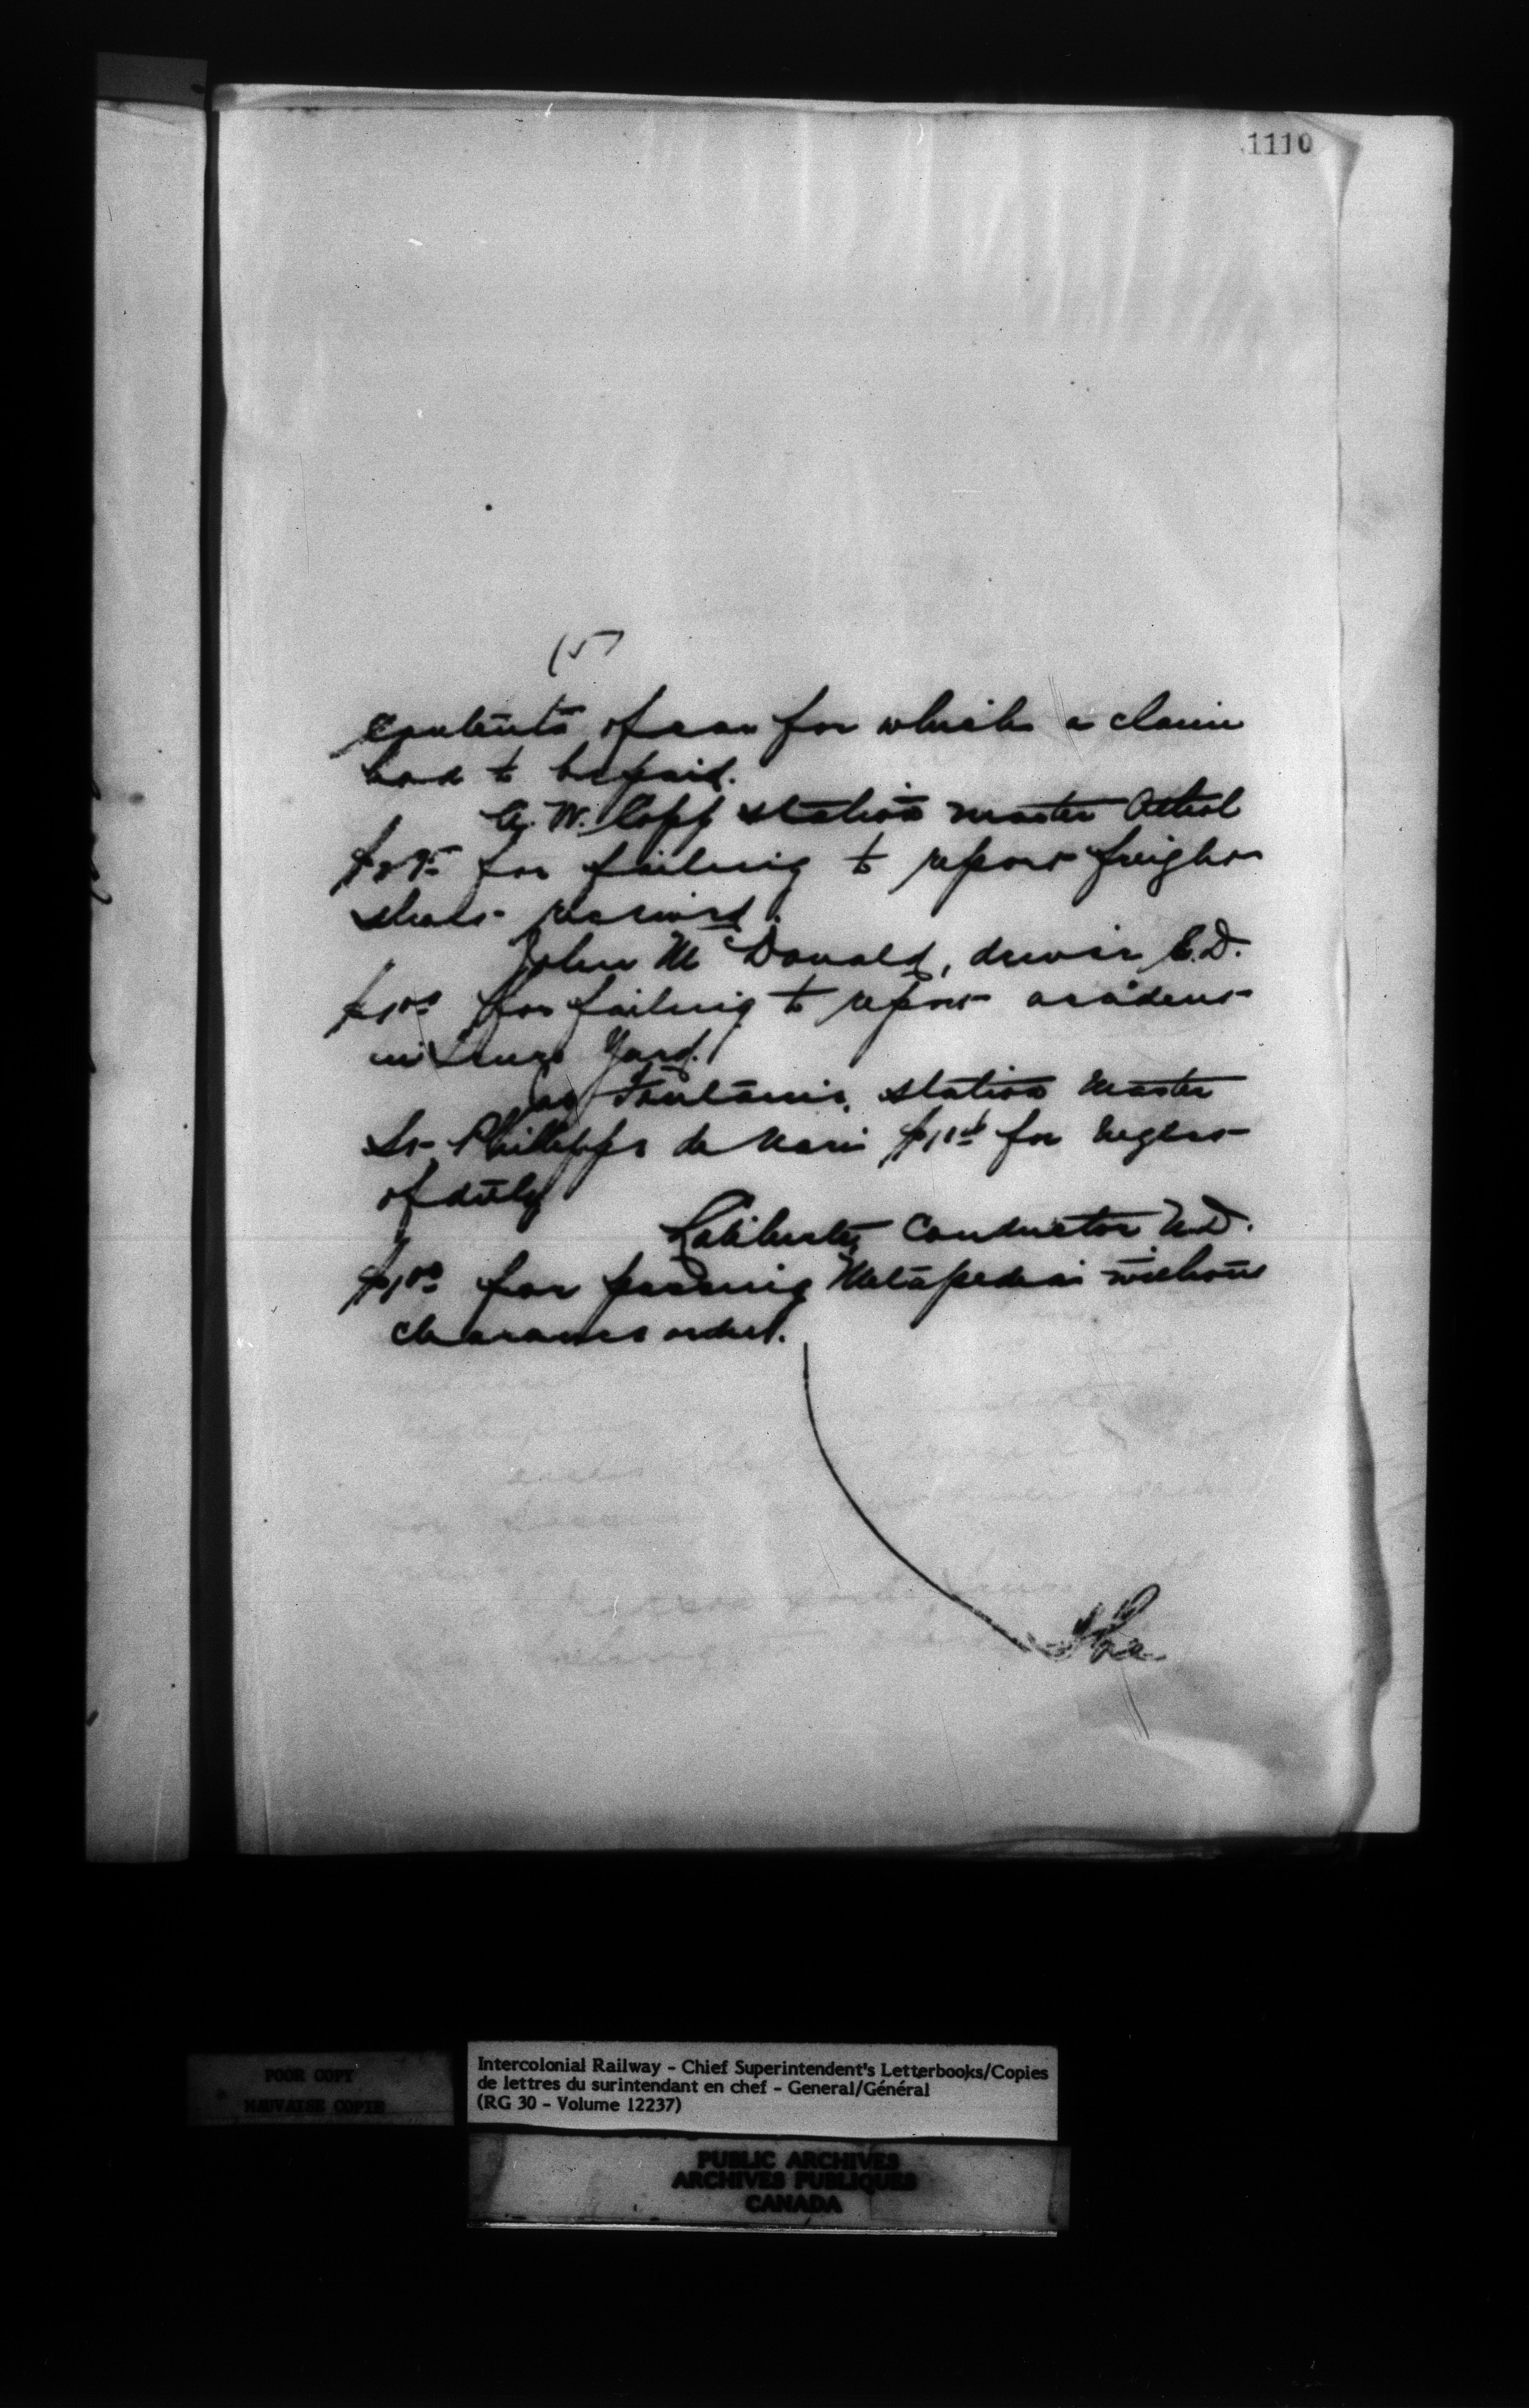 1110
(5)
Contents of car for which a claim
had to be paid.
A. W. Copp Station Master Athol
for failing to report freight
short received.
John McDonald, driver E.D.
$1.00 for failing to report accident
in Truro Yard.
Fontaine, Station Master
St Philippe de Neri $1.00 for neglect
of duty
Laliberte, Conductor N.D.
$1.00 for passing Metapedia without
clearance order.
The
POOR COPY
MAUVAISE COPIE
Intercolonial Railway - Chief Superintendent's Letterbooks/Copies
de lettres du surintendant en chef - General/Général
(RG 30 - Volume 12237)
PUBLIC ARCHIVES
ARCHIVES PUBLIQUES
CANADA